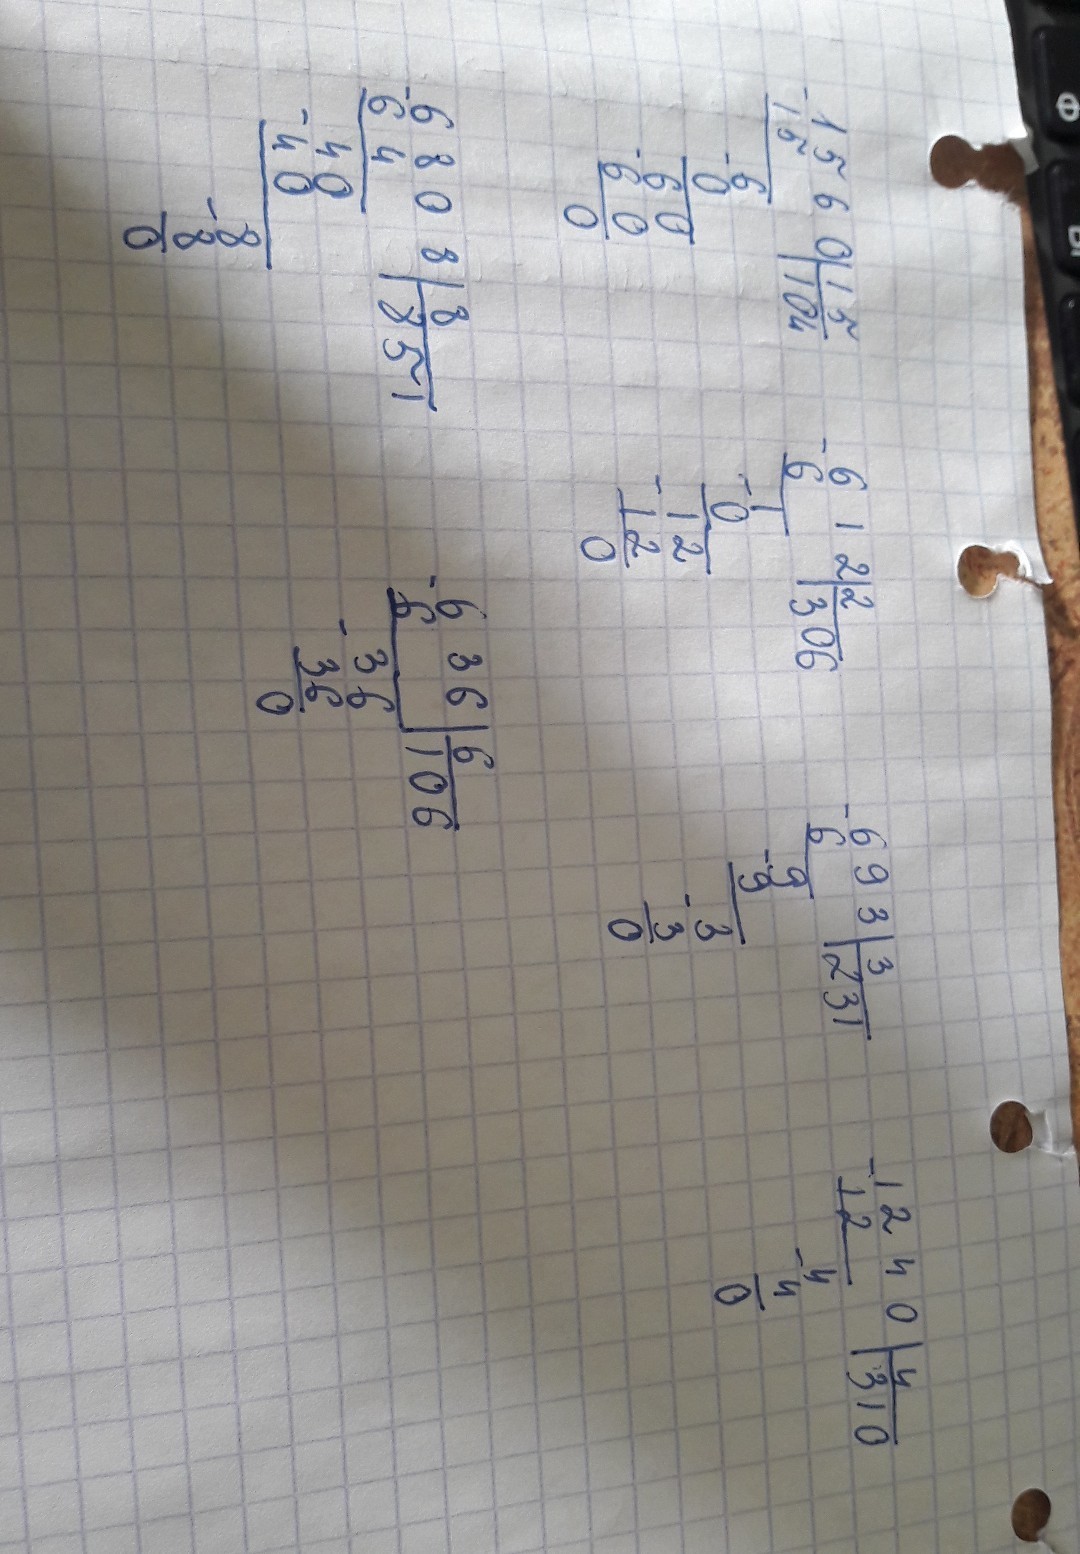 -1560|15
15 104
-6
0
-60
60
0
-612|2
6 306
-1
0
-12
12
0
-693|3
6 231
-9
9
-3
3
0
-1240|4
12 310
-4
4
0
-6808|8
64 851
-40
40
-8
8
0
-636|6
6 106
-36
36
0
Ф
Ы